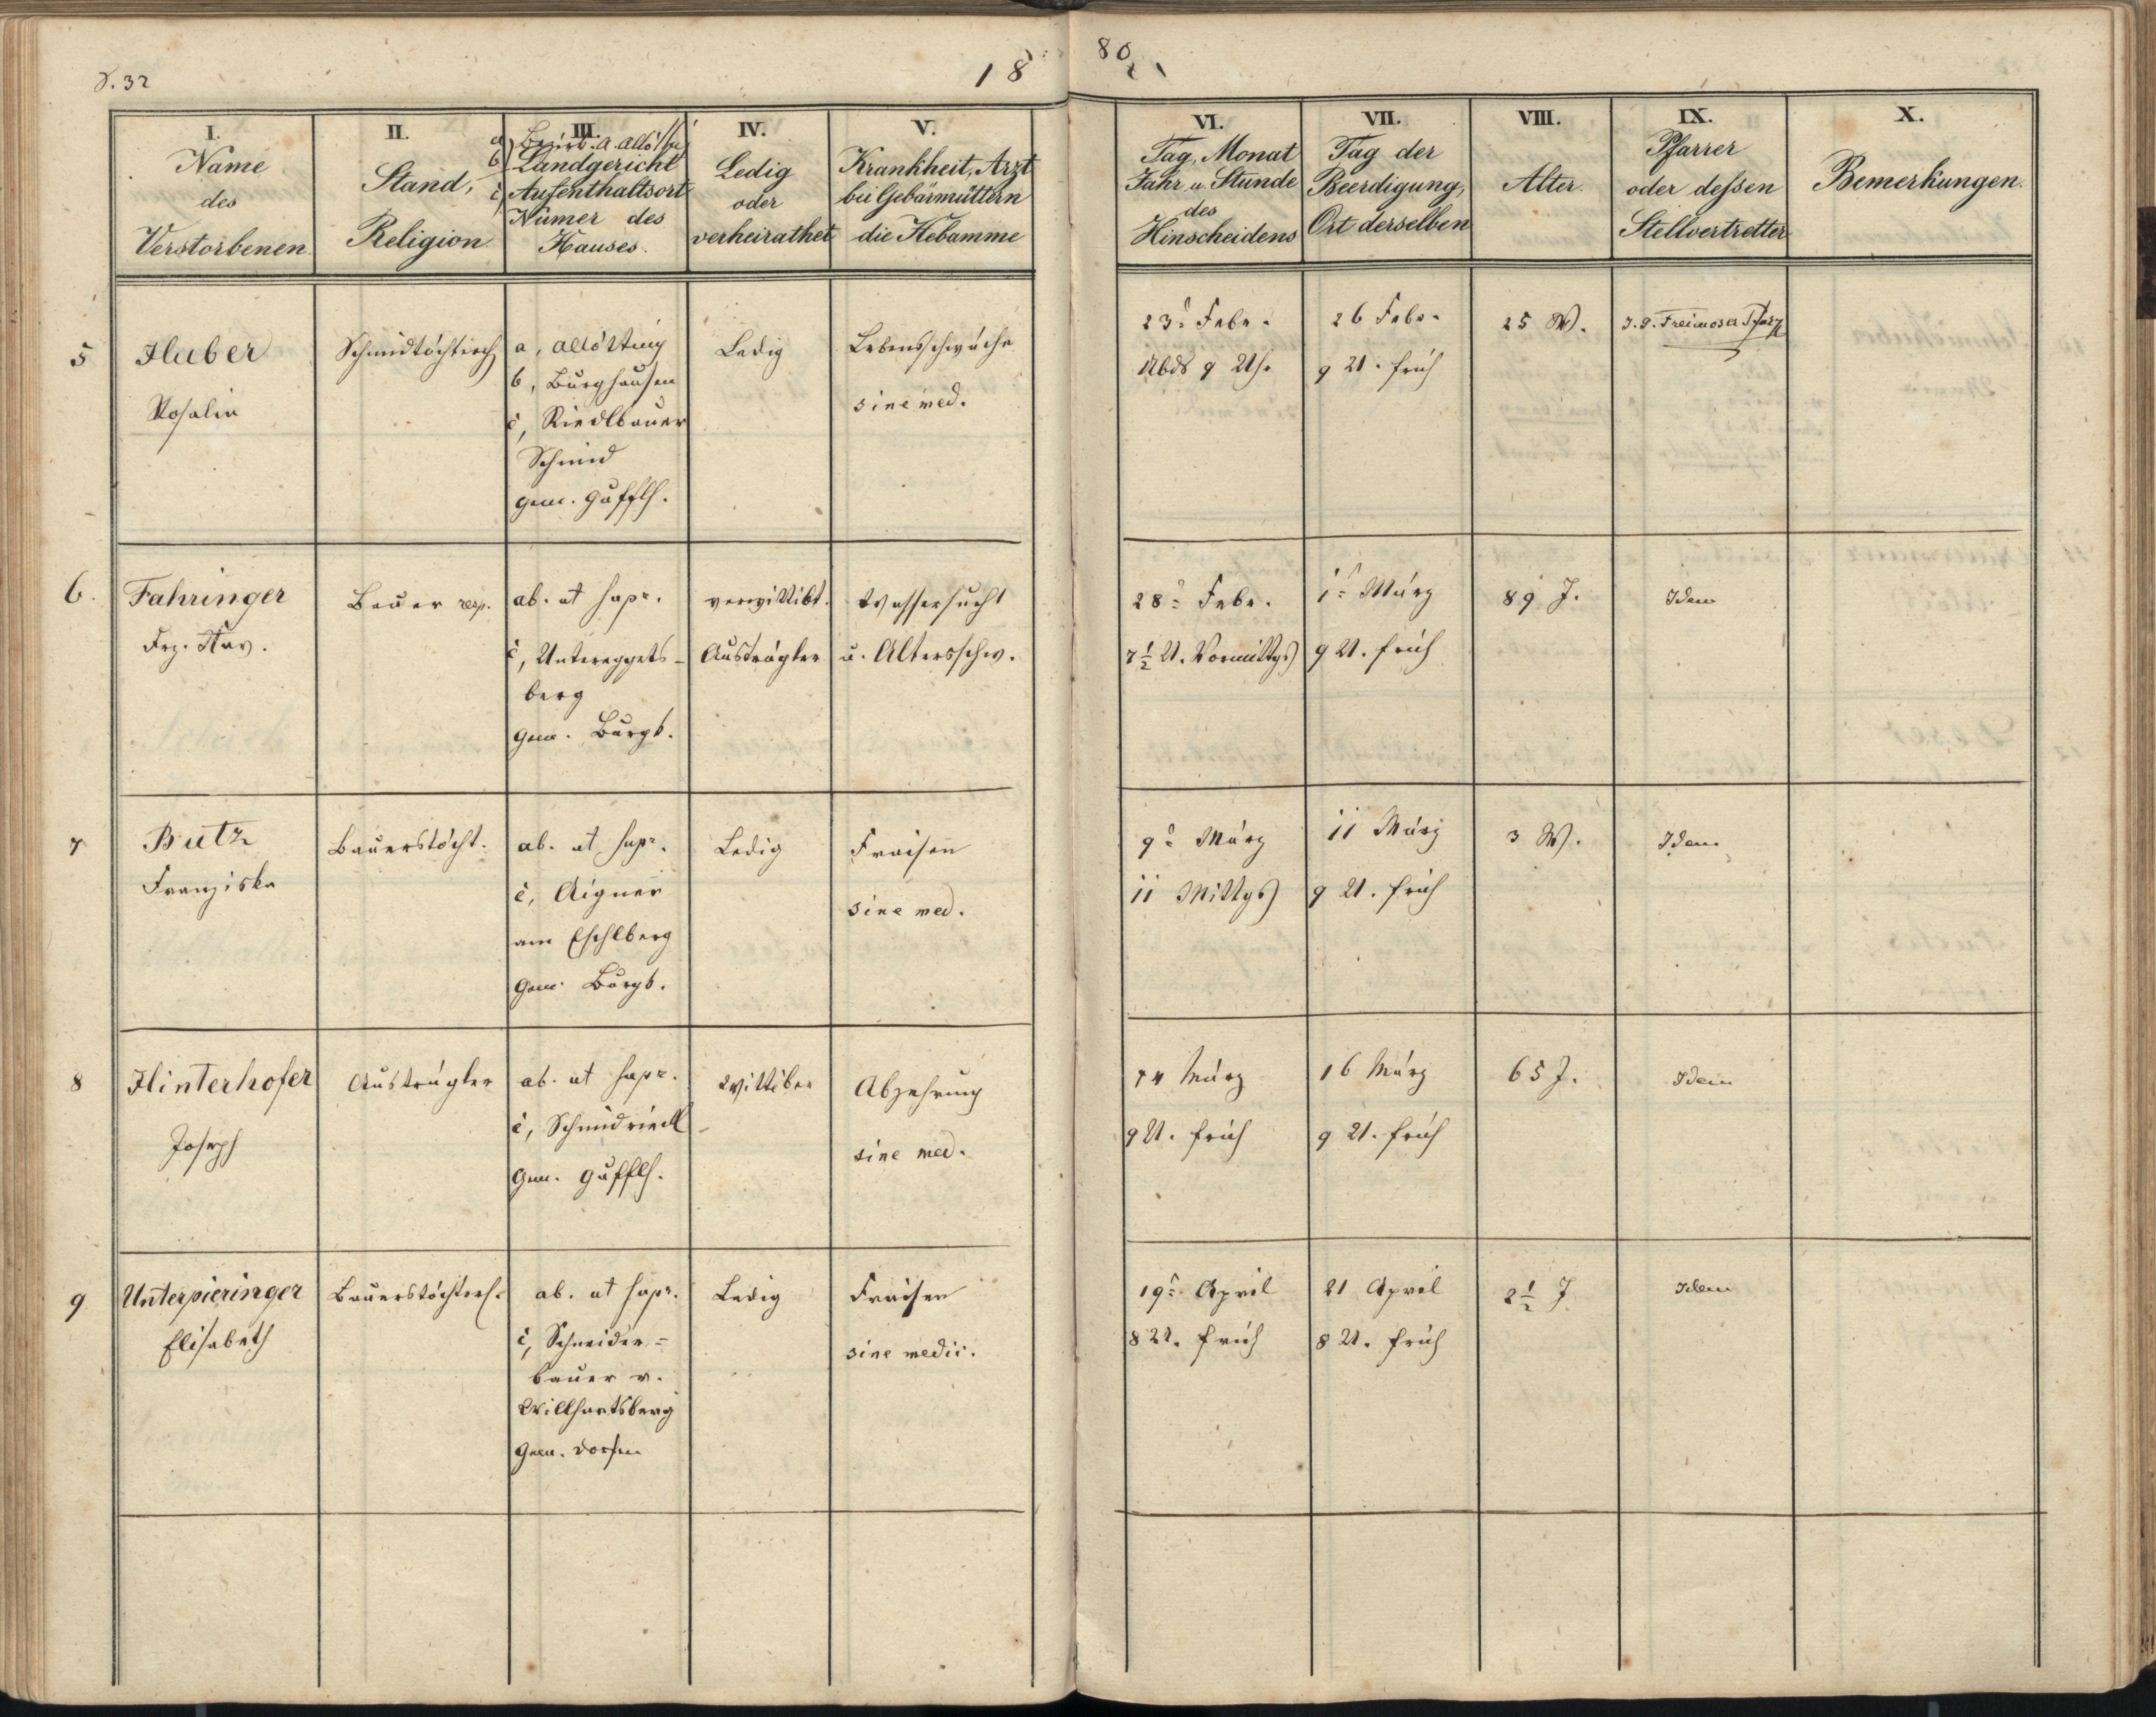 S. 32
18
80
I.
Name
des
Verstorbenen.
II.
Stand,
Religion.
III.
a) Bezirk. A. Altött
b) Landgericht
c) Aufenthaltsort
Numer des
Hauses.
IV.
Ledig
oder
verheirathet
V.
Krankheit, Arzt
bei Gebärmüttern
die Hebamme
VI.
Tag, Monat
Jahr u. Stunde
des
Hinscheidens
VII.
Tag der
Beerdigung,
Ort derselben
VIII.
Alter
IX.
Pfarrer
oder deßen
Stellvertretter
X.
Bemerkungen.
5
Huber
Rosalia
Schmidtöchterch
a, Altötting
b, Burghausen
c, Riedlbauer
Schmid
gem. Gufflh.
Ledig
Lebensschwäche
sine med.
23. Febr.
Abds 9 Uhr
26 Febr.
9 U. früh
25 W.
J. J. Freimoser Pfarr
6.
Fahringer
Frz. Xav.
Bauer resp.
ab. ut supr.
c, Untereggets-
berg
gem. Burgk.
verwittibt.
Austrägler
Wassersucht
u. Altersschw.
28. Febr.
7 1/2 U. Vormittgs
1. März
9 U. früh
89 J.
Idem
7
Butz
Franziska
Bauerstöcht.
ab. ut supr.
c, Aigner
am Eschlberg
Gem. Burgk.
Ledig
Fraisen
sine med.
9. März
11 Mittgs
11 März
9 U. früh
3 W.
Idem
8
Hinterhofer
Joseph
Austrägler
ab. ut supr.
c, Schmidriedl
Gem. Gufflh.
Wittiber
Abzehrung
sine med.
14 März
9 U. früh
16 März
9 U. früh
65 J.
Idem
9
Unterpieringer
Elisabeth
Bauerstöchterl.
ab. ut supr.
c, Schneider=
bauer v.
Willhartsberg
Gem. Dorfen
Ledig
Fraisen
sine medic.
19. April
8 U. früh
21 April
8 U. früh
2 1/2 J
Idem